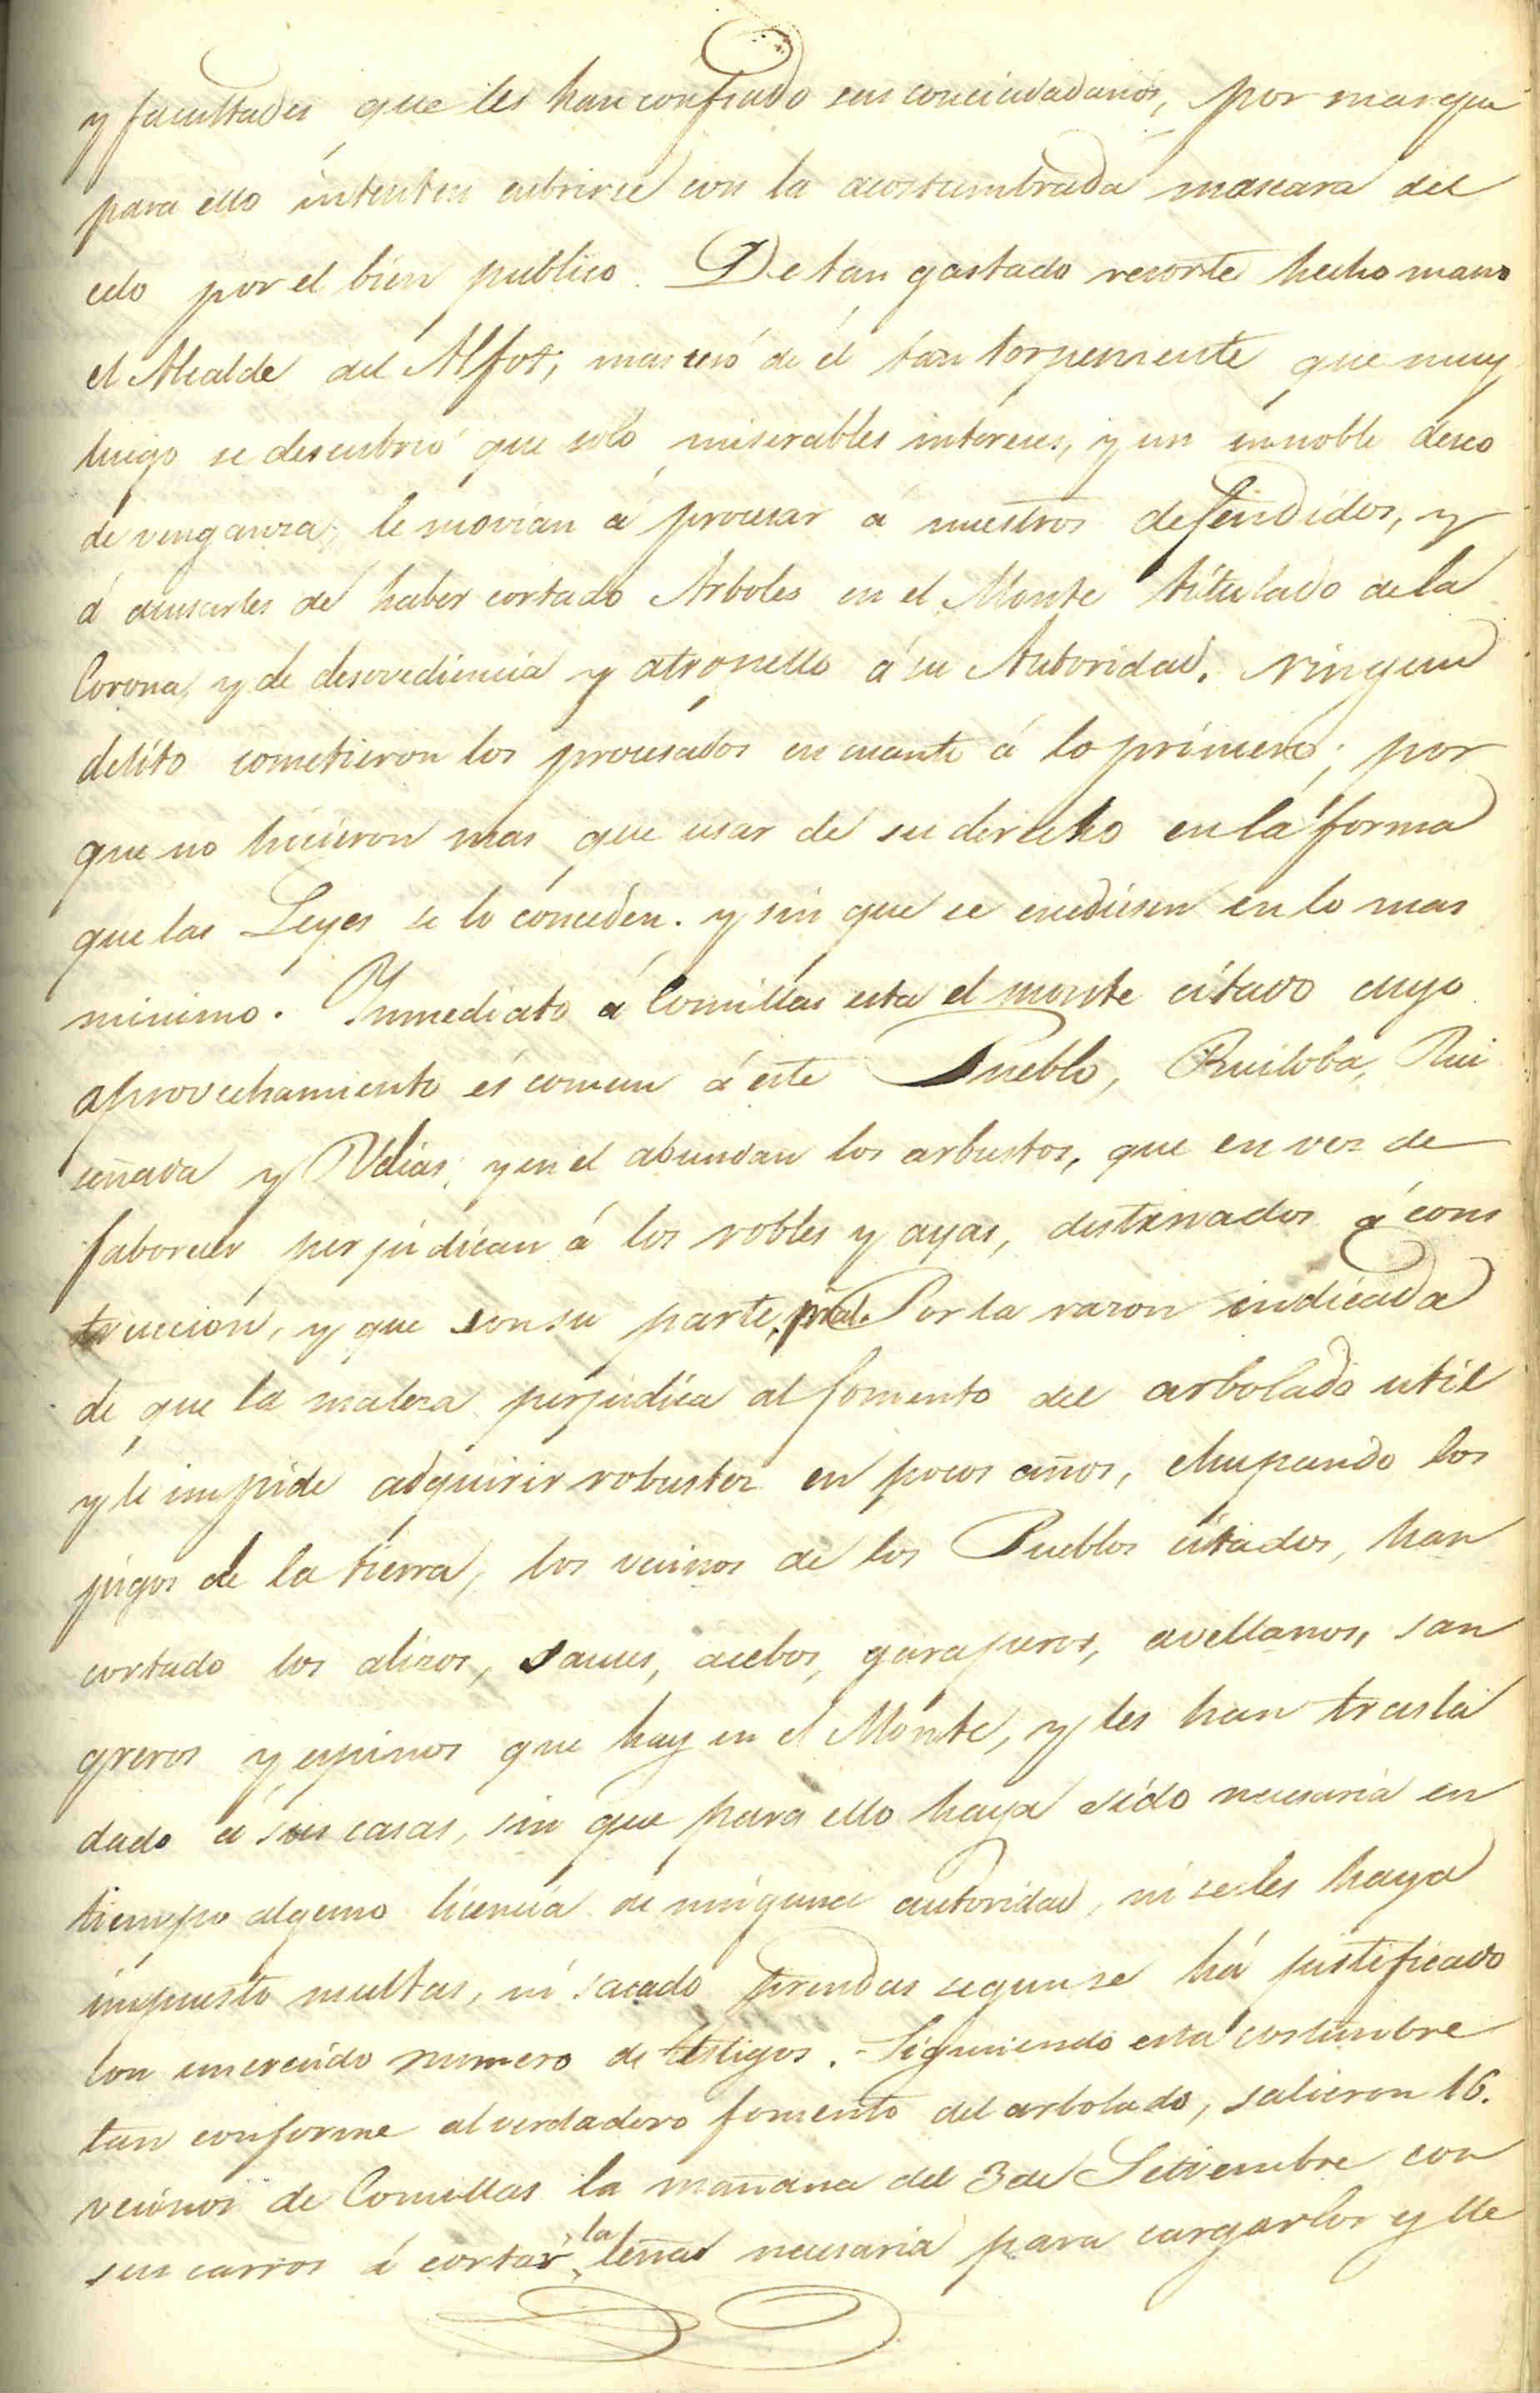 y facultades que les han confiado sus conciudadanos, por mas que
para ello intenten cubrirse con la acostumbrada mascara del
celo por el bien publico. De tan gastado resorte hecho mano
el Alcalde del Alfoz; mas usó de él tan torpemente que muy
luego se descubrió que solo miserables intereses, y un innoble deseo
de venganza, le movian á procesar á nuestros defendidos, y
á acusarles de haber cortado Arboles en el Monte titulado de la
Corona, y de desovediencia y atropello á su Autoridad. Ningun
delito cometieron los procesados en cuanto á lo primero; por
que no hicieron mas que usar de su derecho en la forma
que las Leyes se lo conceden. y sin que se escediesen en lo mas
minimo. Inmediato á Comillas esta el monte citado cuyo
aprovechamiento és comun á este Pueblo, Ruiloba, Rui
señada y Udias; y en el abundan los arbustos, que en vez de
faborecer perjudican á los robles y ayas, destinados á cons
truccion, y que son su parte pral. Por la razon indicada
de que la maleza perjudica al fomento del arbolado util
y le impide adquirir robustez en pocos años, chupando los
jugos de la tierra, los vecinos de los Pueblos citados, han
cortado los alisos, sauces, acebos, garapuros, avellanos, san
greros y espinos que hay en el Monte, y les han trasla
dado á sus casas, sin que para ello haya sido necesaria en
tiempo alguno licencia de ninguna autoridad, ni se les haya
impuesto multas, ni sacado prendas segun se há justificado
con un crecido numero de testigos. Siguiendo esta costumbre
tan conforme al verdadero fomento del arbolado, salieron 16.
vecinos de Comillas la mañana del 3 de Setiembre con
sus carros á cortar la leña necesaria para cargarlos y lle